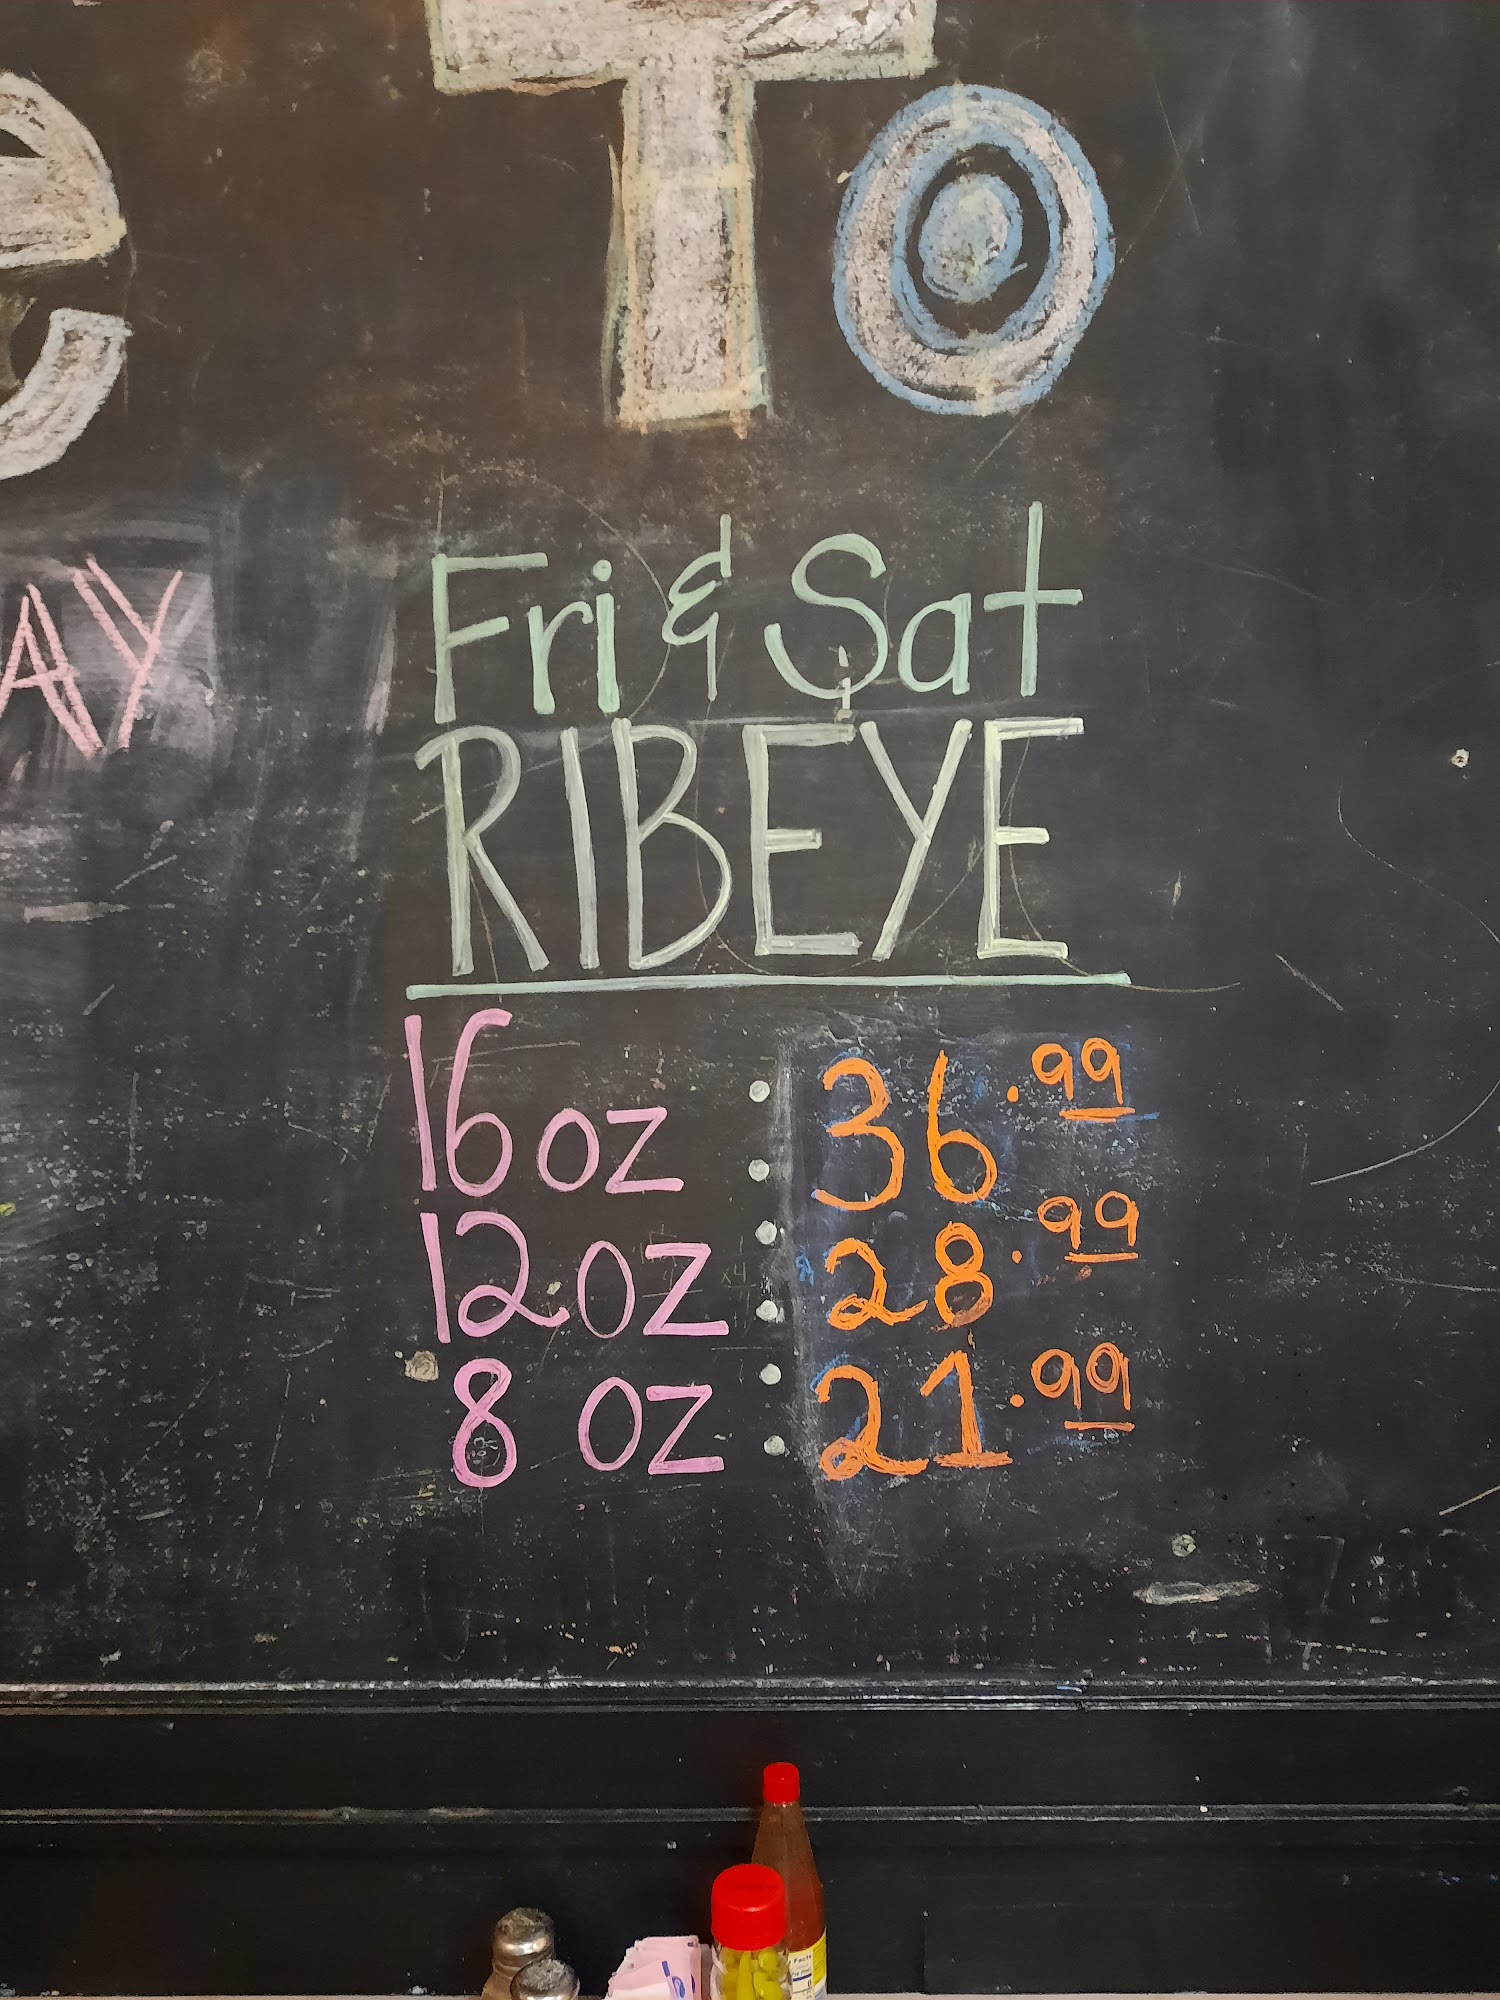 To
AY
Fri & Sat
RIBEYE
16 oz : 36.99
12 oz : 28.99
8 oz : 21.99
Facts